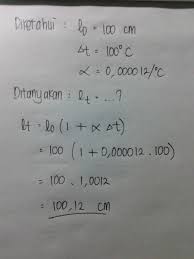 Diketahui : l₀ = 100 cm
Δt = 100°C
α = 0,000012/°C
Ditanyakan : lt = ...?
lt = l₀ (1 + α Δt)
= 100 (1 + 0,000012 . 100)
= 100 . 1,0012
= 100,12 cm